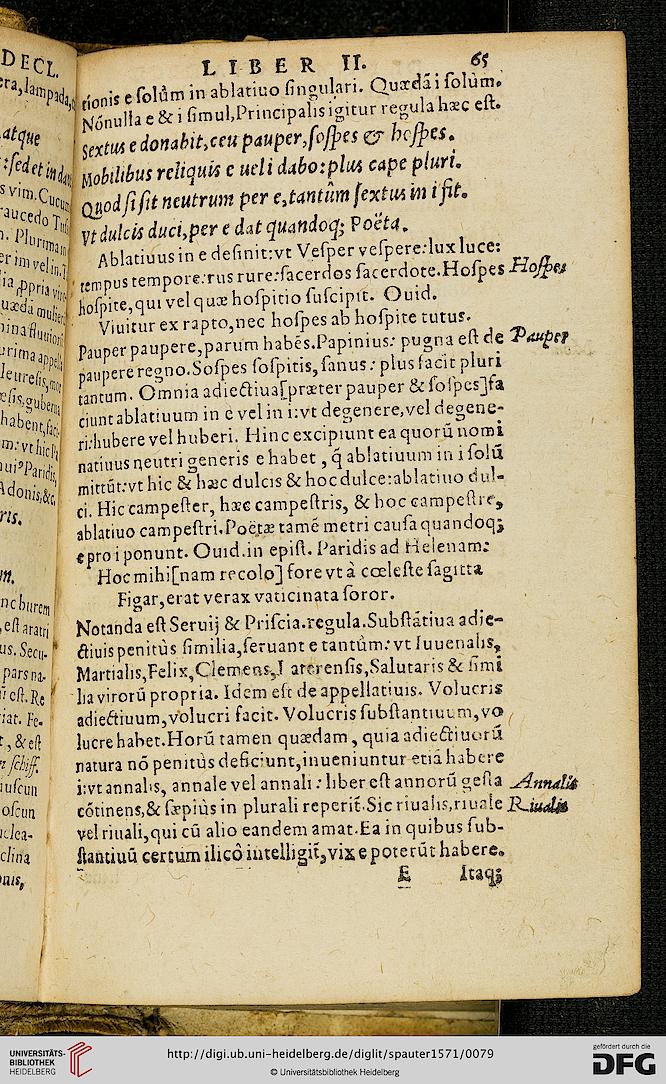 LIBER II. 65
tionis e solûm in ablatiuo singulari. Quædã i solùm.
Nónulla e & i simul, Principalis igitur regula hæc est.
Sextus e donabit, ceu pauper, sospes & hospes.
Mobilibus reliquis e uel i dabo: plus cape pluri.
Quod si sit neutrum per e, tantûm sextus in i fit.
Vt dulcis duci, per e dat quandoq; Poëta.
Ablatiuus in e definit: vt Vesper vespere: lux luce:
tempus tempore: rus rure: sacerdos sacerdote. Hospes
Hospes
hospite, qui vel quæ hospitio suscipit. Ouid.
Viuitur ex rapto, nec hospes ab hospite tutus.
Pauper paupere, parum habẽs. Papinius: pugna est de
Pauper
paupere regno. Sospes sospitis, sanus: plus facit pluri
tantum. Omnia adiectiua [præter pauper & sospes] fa
ciunt ablatiuum in e vel in i: vt degenere, vel degene-
ri: hubere vel huberi. Hinc excipiunt ea quorũ nomi
natiuus neutri generis e habet, q̃ ablatiuum in i solũ
mittũt: vt hic & hæc dulcis & hoc dulce: ablatiuo dul-
ci. Hic campester, hæc campestris, & hoc campestre,
ablatiuo campestri. Poëtæ tamẽ metri causa quandoq;
e pro i ponunt. Ouid. in epist. Paridis ad Helenam:
Hoc mihi [nam recolo] fore vt à cœleste sagitta
Figar, erat verax vaticinata soror.
Notanda est Seruij & Priscia. regula. Substãtiua adie-
ctiuis penitùs similia, seruant e tantùm: vt Iuuenalis,
Martialis, Felix, Clemens, Laterensis, Salutaris & simi
lia virorũ propria. Idem est de appellatiuis. Volucris
adiectiuum, volucri facit. Volucris substantiuum, vo
lucre habet. Horũ tamen quædam, quia adiectiuorũ
natura nõ penitùs deficiunt, inueniuntur etiã habere
i: vt annalis, annale vel annali: liber est annorũ gesta
Annalis
cõtinens, & sæpiùs in plurali reperit̃. Sic riualis, riuale
Riualis
vel riuali, qui cũ alio eandem amat. Ea in quibus sub-
stantiuũ certum ilicò intelligit̃, vix e poterũt habere.
E Itaq;
DECL.
UNIVERSITÄTS-
BIBLIOTHEK
HEIDELBERG
http://digi.ub.uni-heidelberg.de/diglit/spauter1571/0079
© Universitätsbibliothek Heidelberg
gefördert durch die
DFG